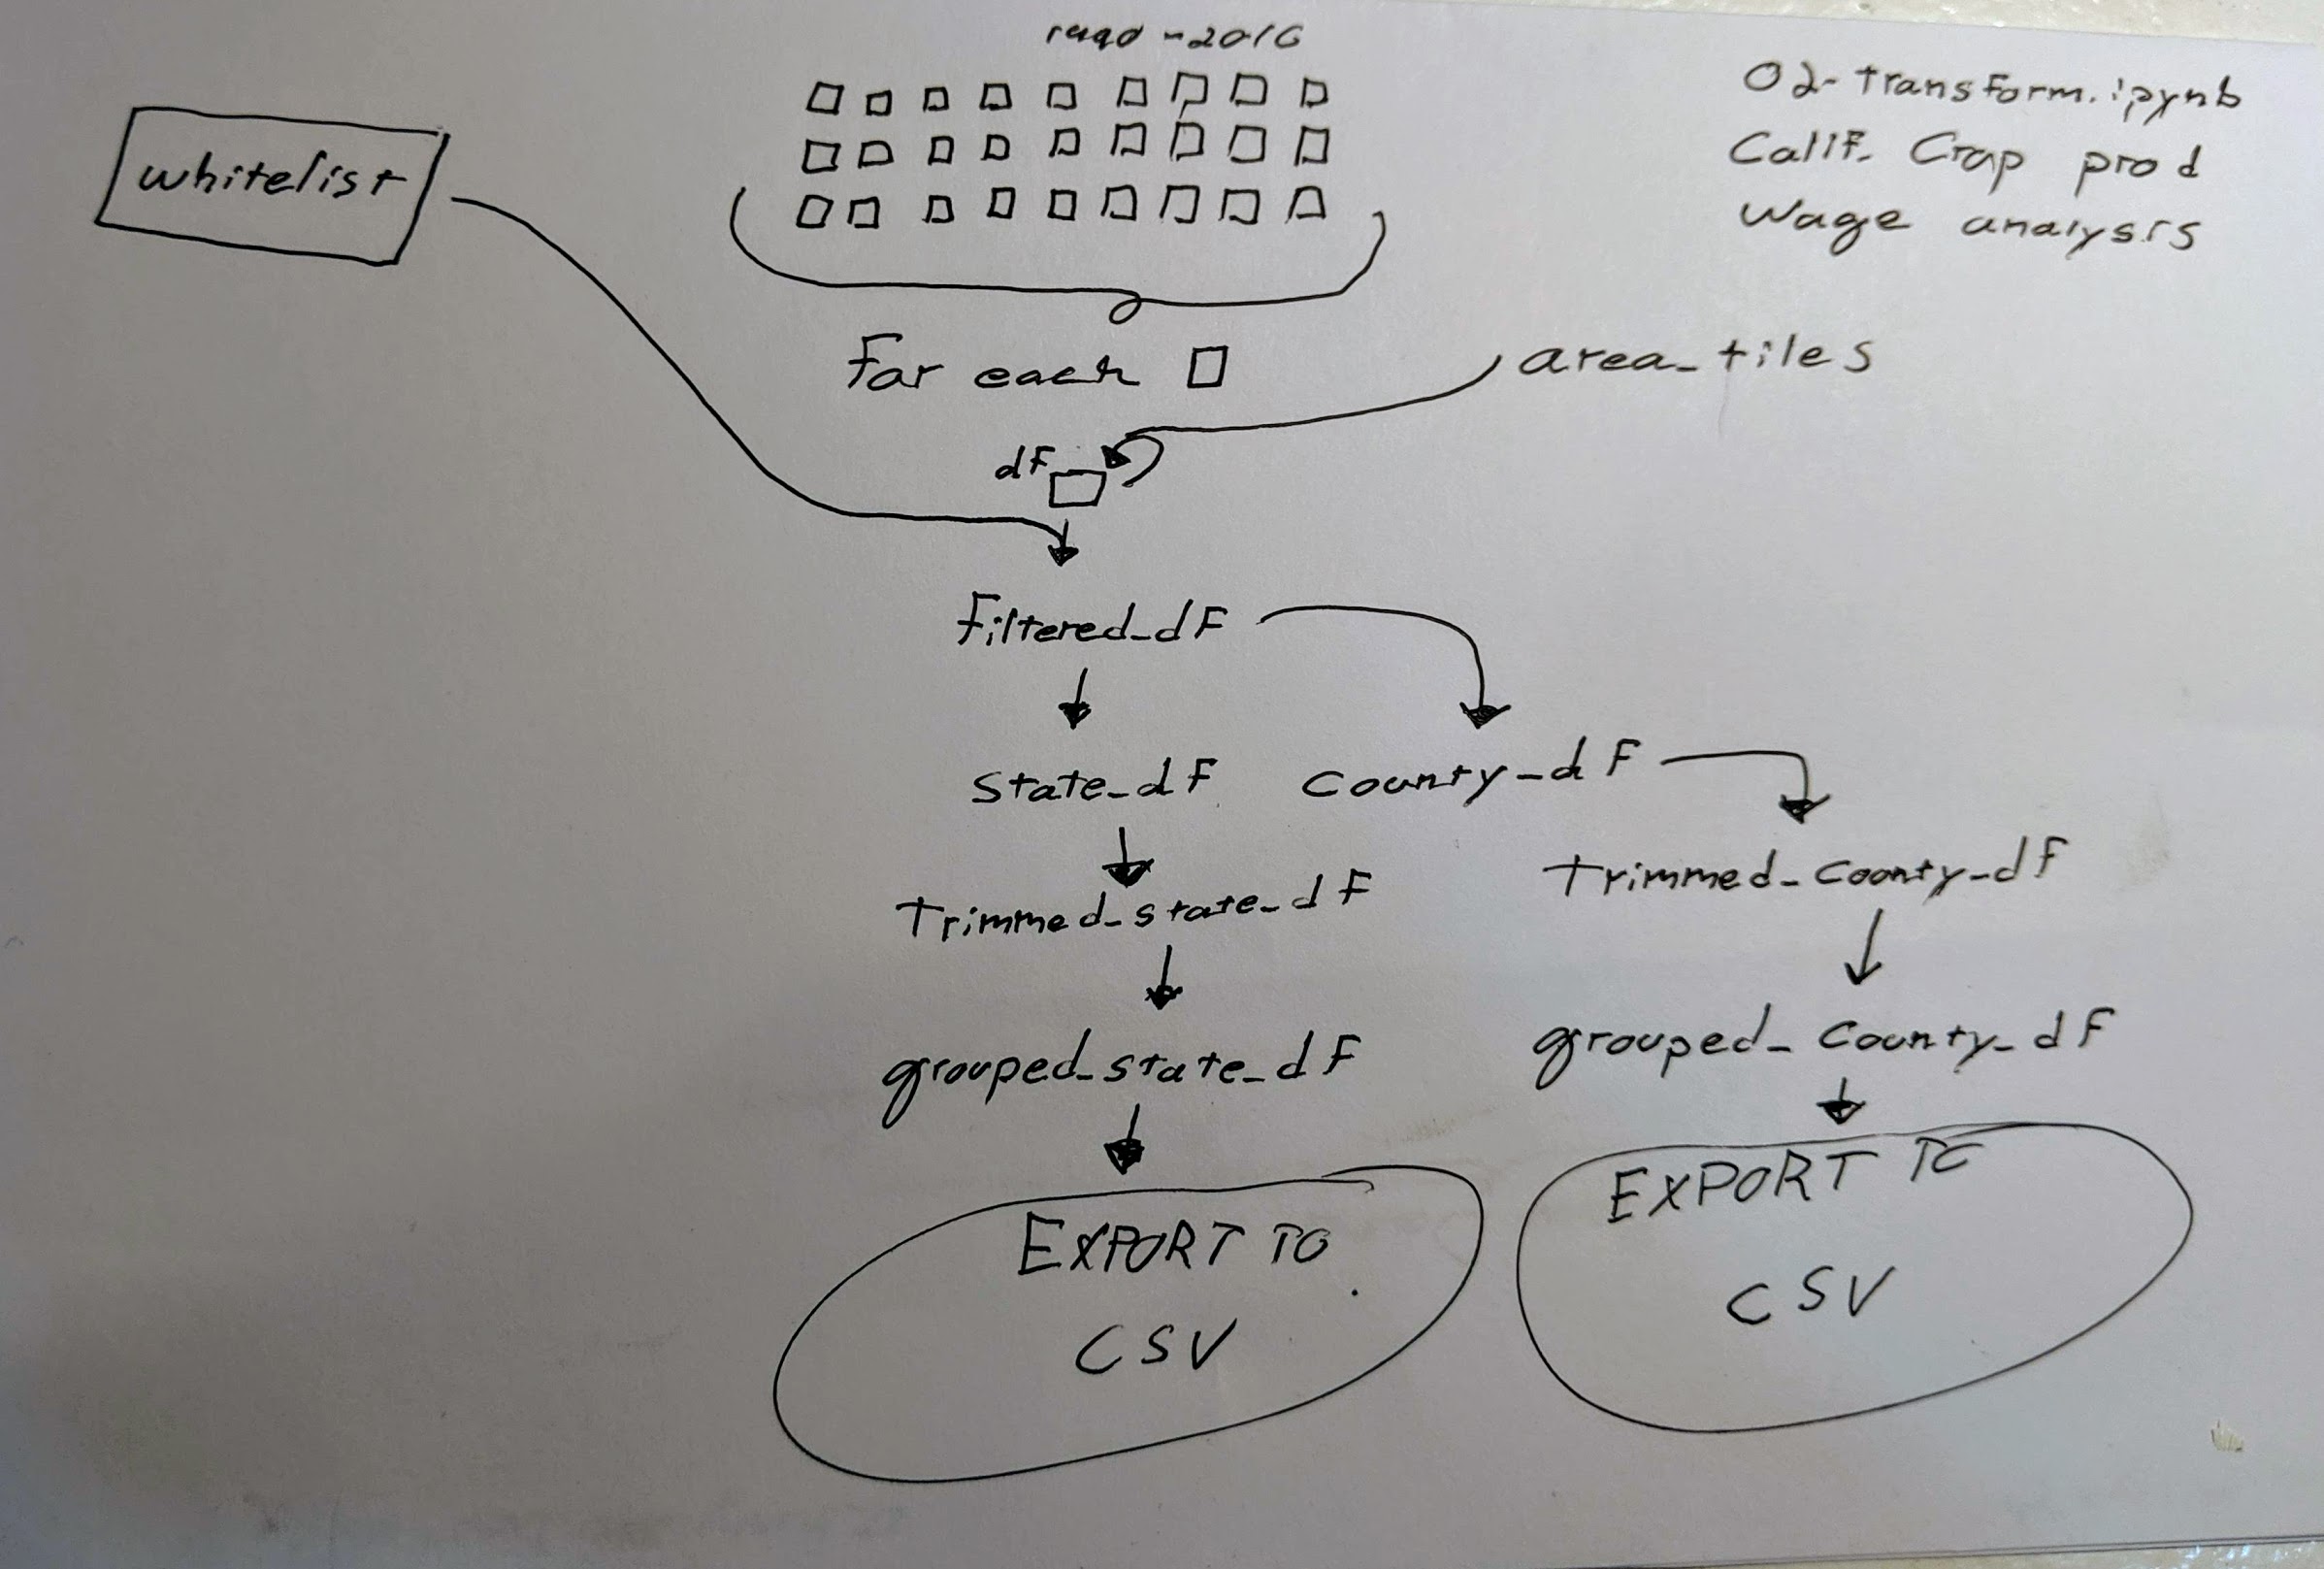 1990-2016
02-transform.ipynb
Calif. Crop prod
Wage analysis
whitelist
For each
area_tiles
df
Filtered_dF
State_dF
County_dF
Trimmed_state_dF
Trimmed_County_dF
grouped_state_dF
grouped_County_dF
EXPORT TO
CSV
EXPORT TO
CSV